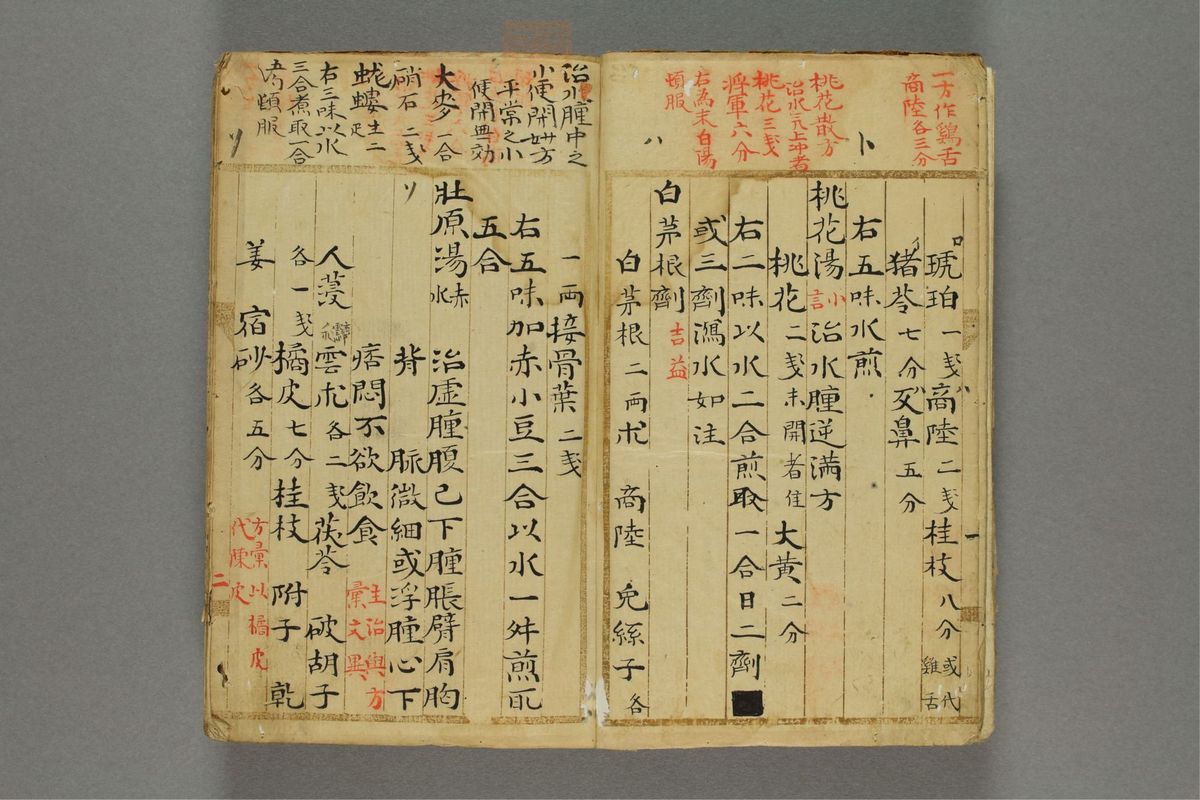 一方作鷄舌
商陸各三分
桃花散方
治水气上冲者
桃花三戔
將軍六分
右為末白湯
頓服
ハ
ト
琥珀一戔商陸二戔桂枝八分或代雞舌
猪苓七分反鼻五分
右五味水煎
桃花湯小言治水腫逆満方
桃花二戔未開者佳大黄二分
右二味以水二合煎取一合日二劑
或三劑瀉水如注
白茅根劑吉益
白茅根二両朮商陸兔絲子各
治水腫中之
小便閉妙方
平常之小
便閉無効
大麥一合
硝石二戔
螻土二
右三味以水
三合煮取一合
頓服
リ
一両接骨葉二戔
右五味加赤小豆三合以水一舛煎取
五合
リ
壯原湯赤水治虚腫腹已下腫脹臂肩胸
背脈微細或浮腫心下
痞悶不欲飲食主治與方彙文異
人蔆雲朮各二戔茯苓破胡子
各一戔橘皮七分桂枝附子乾
姜宿砂各五分方彙以橘皮代陳皮
二